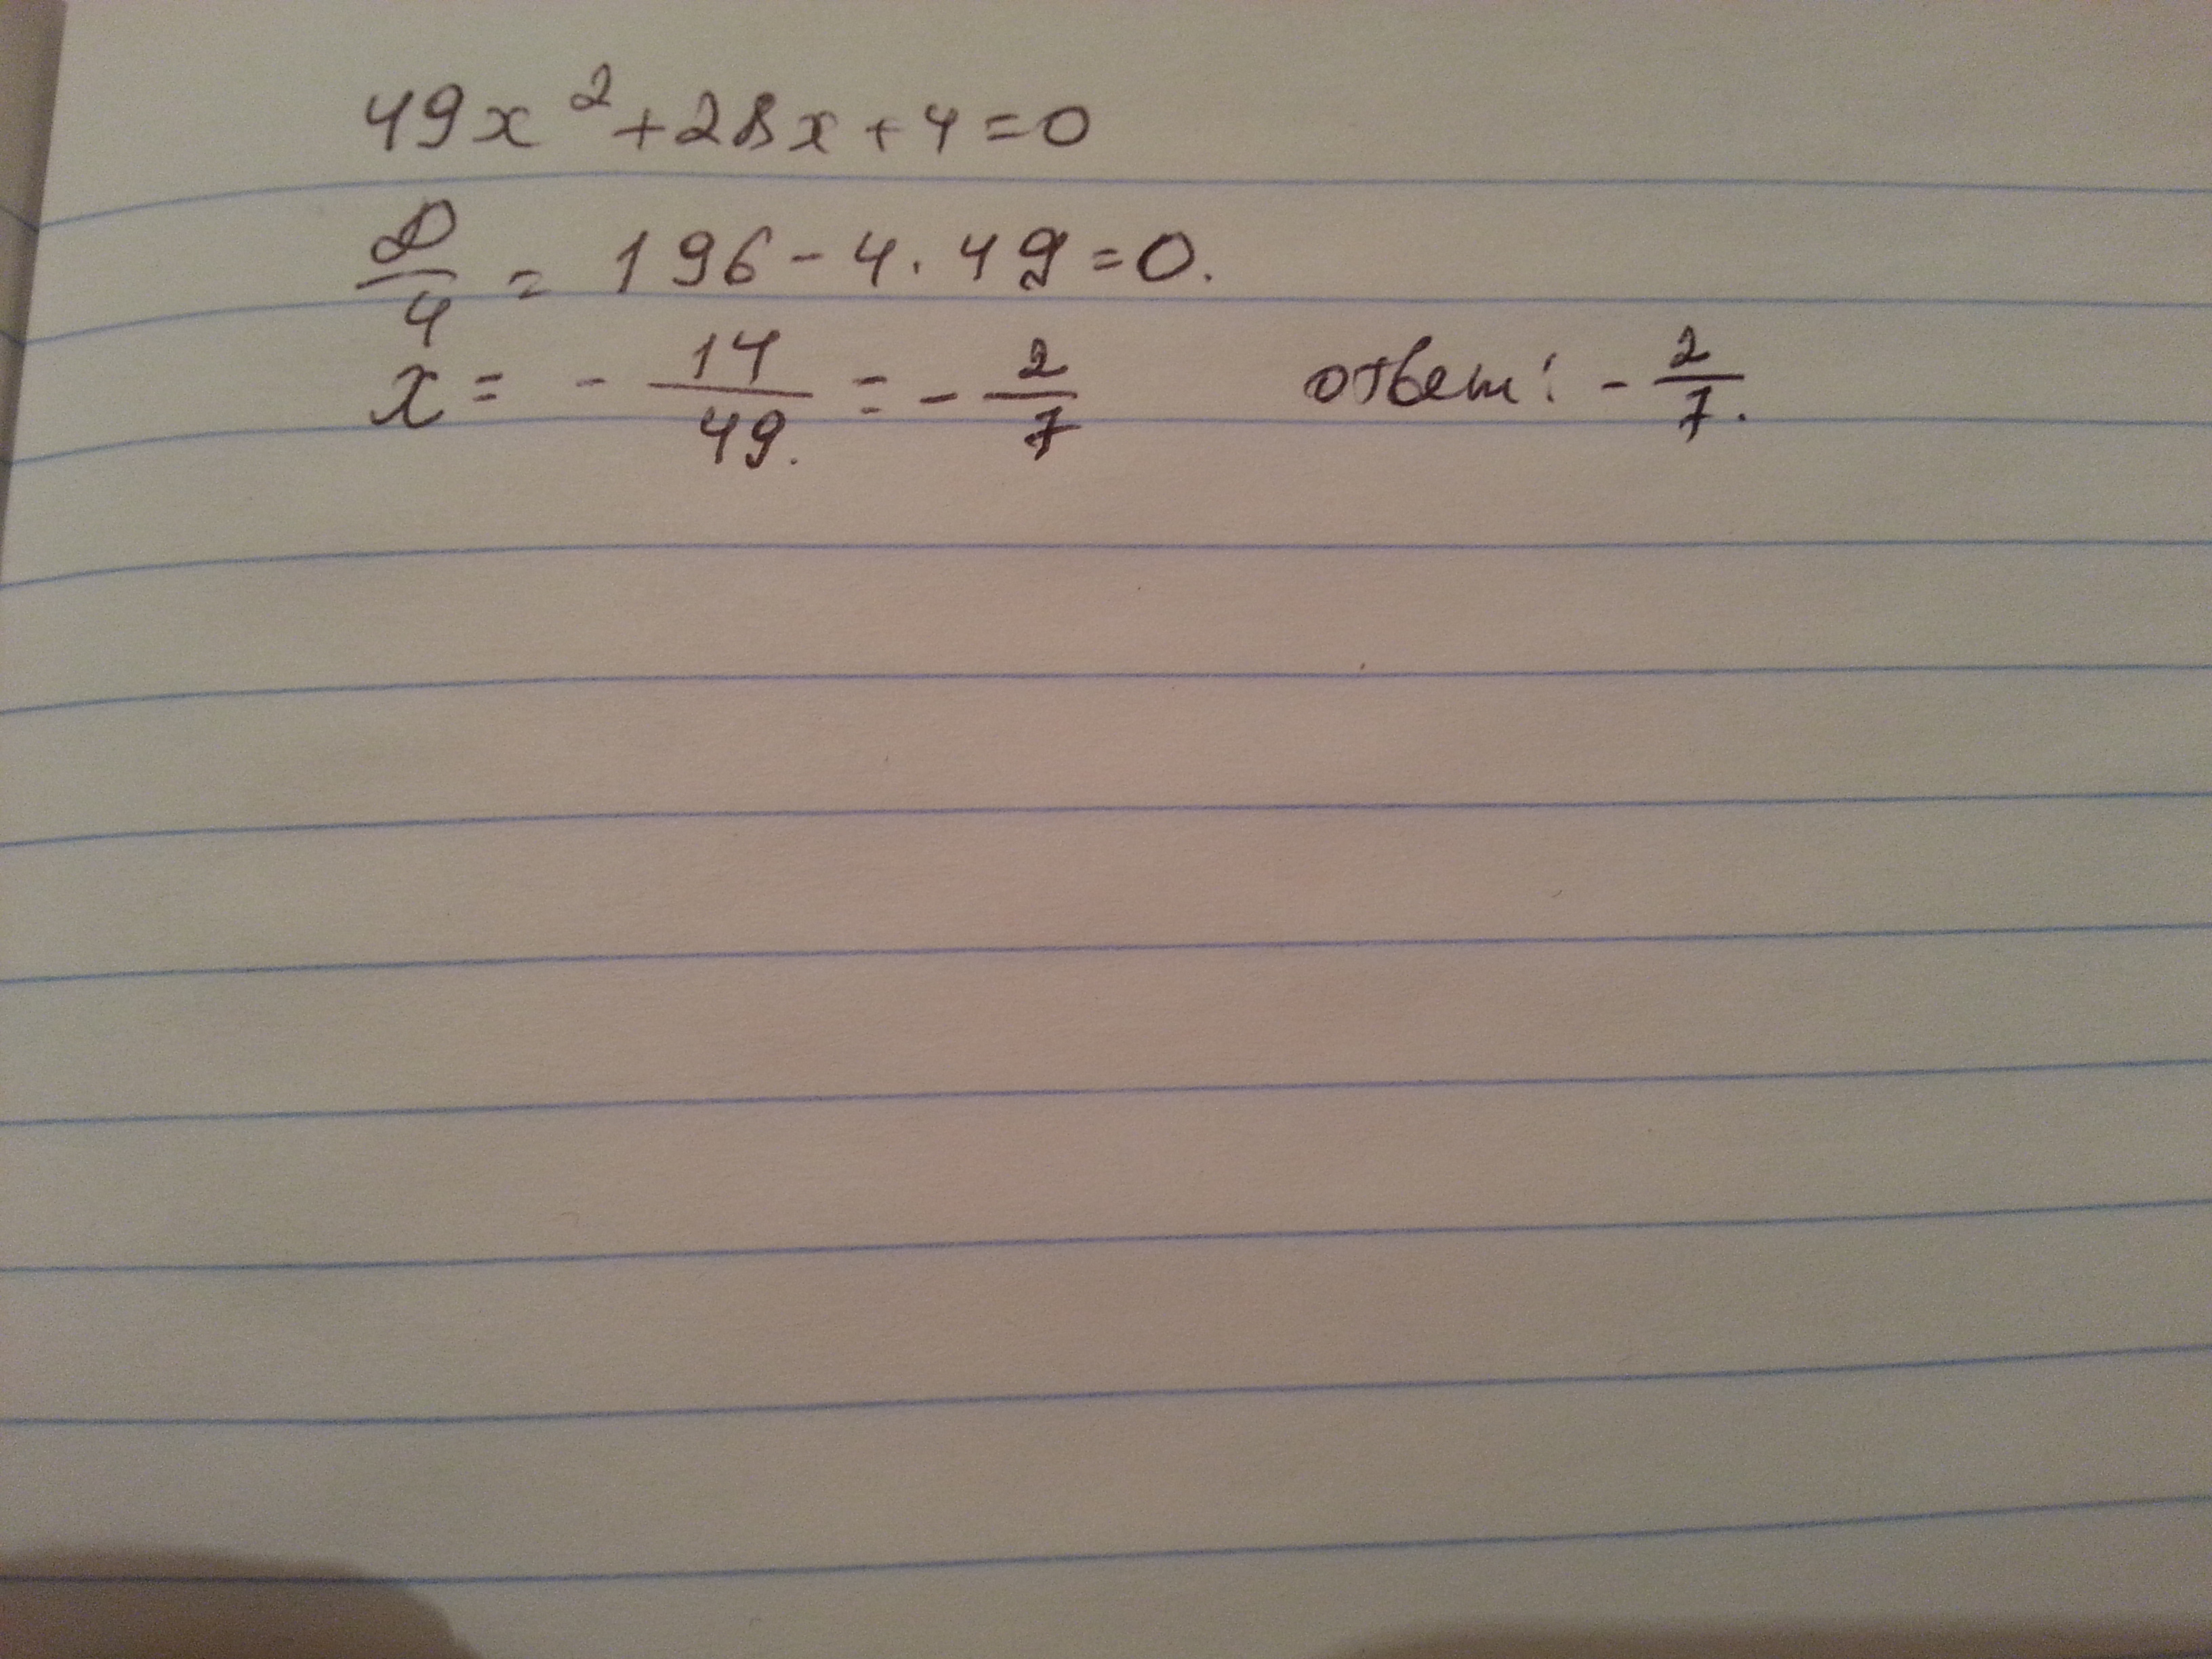 49x² + 28x + 4 = 0
D/4 = 196 - 4 · 49 = 0.
x = - 14/49. = - 2/7 ответ: - 2/7.